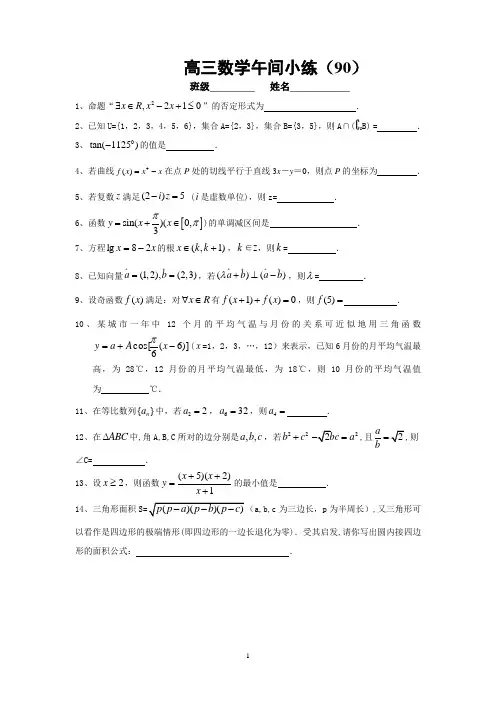 高三数学午间小练（90）
班级_________ 姓名____________
1、命题“∃x∈R, x²－2x＋1≤0”的否定形式为 ．
2、已知 U={1，2，3，4，5，6}，集合 A={2，3}，集合 B={3，5}，则 A∩(∁ᵤB) = ．
3、 tan(－1125⁰) 的值是 ．
4、若曲线 f(x)=x⁴－x 在点 P 处的切线平行于直线 3x－y＝0，则点 P 的坐标为 ．
5、若复数 z 满足 (2－i)z=5 (i 是虚数单位)，则 z= ．
6、函数 y=sin(x+π/3)(x∈[0,π]) 的单调减区间是 ．
7、方程 lg x=8－2x 的根 x∈(k,k+1)，k∈z，则 k= ．
8、已知向量 a=(1,2),b=(2,3)，若 (λa+b)⊥(a－b)，则 λ= ．
9、设奇函数 f(x) 满足：对 ∀x∈R 有 f(x+1)+f(x)=0，则 f(5)= ．
10、某城市一年中 12 个月的平均气温与月份的关系可近似地用三角函数
y=a+Acos[π/6(x－6)] (x =1，2，3，…，12）来表示，已知 6 月份的月平均气温最
高，为 28℃，12 月份的月平均气温最低，为 18℃，则 10 月份的平均气温值
为 ℃．
11、在等比数列{aₙ}中，若 a₂=2，a₆=32，则 a₄= ．
12、在 ΔABC 中,角 A,B,C 所对的边分别是 a,b,c，若 b²+c²－√2bc=a²,且 a/b=√2,则
∠C= ．
13、设 x≥2，则函数 y=(x+5)(x+2)/(x+1) 的最小值是 ．
14、三角形面积 S=√p(p－a)(p－b)(p－c)（a,b,c 为三边长，p 为半周长）,又三角形可
以看作是四边形的极端情形(即四边形的一边长退化为零)．受其启发,请你写出圆内接四边
形的面积公式： ．
1